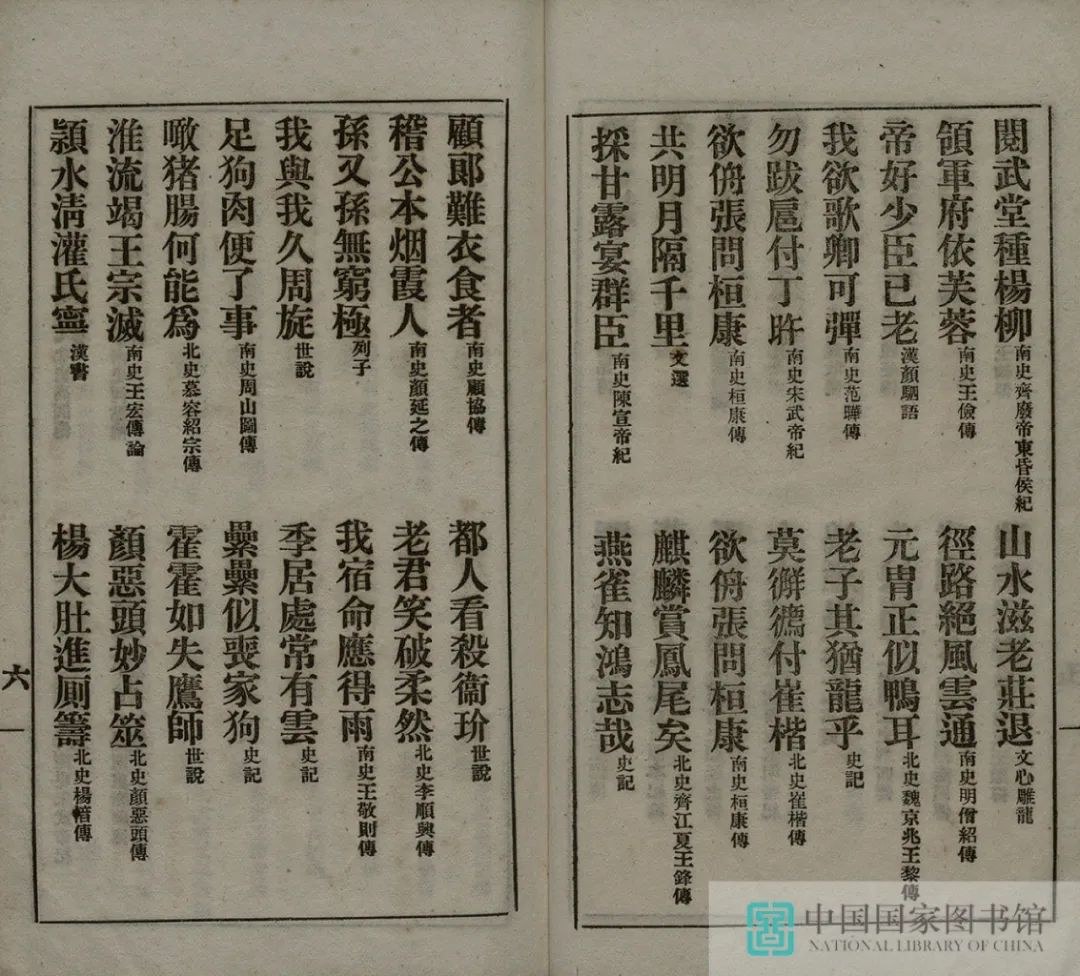 閱武堂種楊柳南史齊廢帝東昏侯紀
山水滋老莊退文心雕龍
領軍府依芙蓉南史王儉傳
徑路絕風雲通南史明僧紹傳
帝好少臣已老漢顏駟語
元冑正似鴨耳北史魏京兆王黎傳
我欲歌卿可彈南史范曄傳
老子其猶龍乎史記
勿跋扈付丁旿南史宋武帝紀
莫獬𢊁付崔楷北史崔楷傳
欲侜張問桓康南史桓康傳
欲侜張問桓康南史桓康傳
共明月隔千里文選
麒麟賞鳳尾矣北史齊江夏王鋒傳
採甘露宴群臣南史陳宣帝紀
燕雀知鴻志哉史記
顧郎難衣食者南史顧協傳
都人看殺衞玠世說
稽公本烟霞人南史顏延之傳
老君笑破柔然北史李順興傳
孫又孫無窮極列子
我宿命應得雨南史王敬則傳
我與我久周旋世說
季居處常有雲史記
足狗肉便了事南史周山圖傳
纍纍似喪家狗史記
噉猪腸何能為北史慕容紹宗傳
霍霍如失鷹師世說
淮流竭王宗滅南史王宏傳論
顏惡頭妙占筮北史顏惡頭傳
潁水淸灌氏寧漢書
楊大肚進厠籌北史楊愔傳
六
中国国家图书馆
NATIONAL LIBRARY OF CHINA